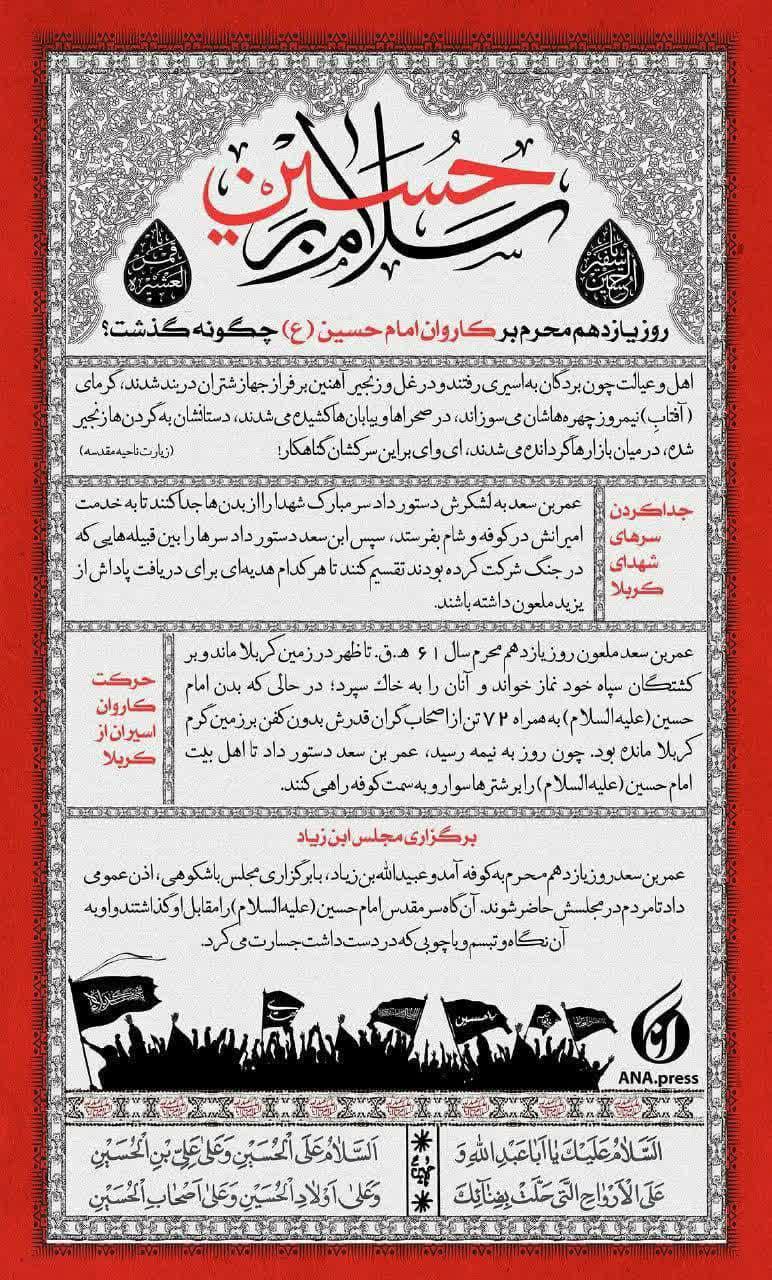 سلام بر حسین
یا سفیر الحسین
یا قمر العشیره
روز یازدهم محرم بر کاروان امام حسین (ع) چگونه گذشت؟
اهل و عیالت چون بردگان به اسیری رفتند و در غل و زنجیر آهنین بر فراز جهاز شتران در بند شدند، گرمای
(آفتابِ) نیمروز چهره‌هاشان می‌سوزاند، در صحراها و بیابان‌ها کشیده می‌شدند، دستانشان به گردن‌ها زنجیر
شده، در میان بازارها گردانده می‌شدند، ای وای بر این سرکشان گناهکار! (زیارت ناحیه مقدسه)
جدا کردن
سرهای
شهدای
کربلا
عمر بن سعد به لشکرش دستور داد سر مبارک شهدا را از بدن‌ها جدا کنند تا به خدمت
امیرانش در کوفه و شام بفرستد، سپس ابن سعد دستور داد سرها را بین قبیله‌هایی که
در جنگ شرکت کرده بودند تقسیم کنند تا هر کدام هدیه‌ای برای دریافت پاداش از
یزید ملعون داشته باشند.
حرکت
کاروان
اسیران از
کربلا
عمر بن سعد ملعون روز یازدهم محرم سال ۶۱ ه‍.ق. تا ظهر در زمین کربلا ماند و بر
کشتگان سپاه خود نماز خواند و آنان را به خاک سپرد؛ در حالی که بدن امام
حسین (علیه السلام) به همراه ۷۲ تن از اصحاب گران قدرش بدون کفن بر زمین گرم
کربلا مانده بود. چون روز به نیمه رسید، عمر بن سعد دستور داد تا اهل بیت
امام حسین (علیه السلام) را بر شترها سوار و به سمت کوفه راهی کنند.
برگزاری مجلس ابن زیاد
عمر بن سعد روز یازدهم محرم به کوفه آمد و عبیدالله بن زیاد، با برگزاری مجلس باشکوهی، اذن عمومی
داد تا مردم در مجلسش حاضر شوند. آن گاه سر مقدس امام حسین (علیه السلام) را مقابل او گذاشتند و او به
آن نگاه و تبسم و با چوبی که در دست داشت جسارت می‌کرد.
یا حسین
آنا
ANA.press
اَلسَّلامُ عَلَیْكَ یا اَبا عَبْدِ اللهِ وَ
عَلَی الْاَرْواحِ الَّتی حَلَّتْ بِفِنآئِكَ
اَلسَّلامُ عَلَی الْحُسَیْنِ وَ عَلی عَلِیِّ بْنِ الْحُسَیْنِ
وَ عَلی اَوْلادِ الْحُسَیْنِ وَ عَلی اَصْحابِ الْحُسَیْنِ